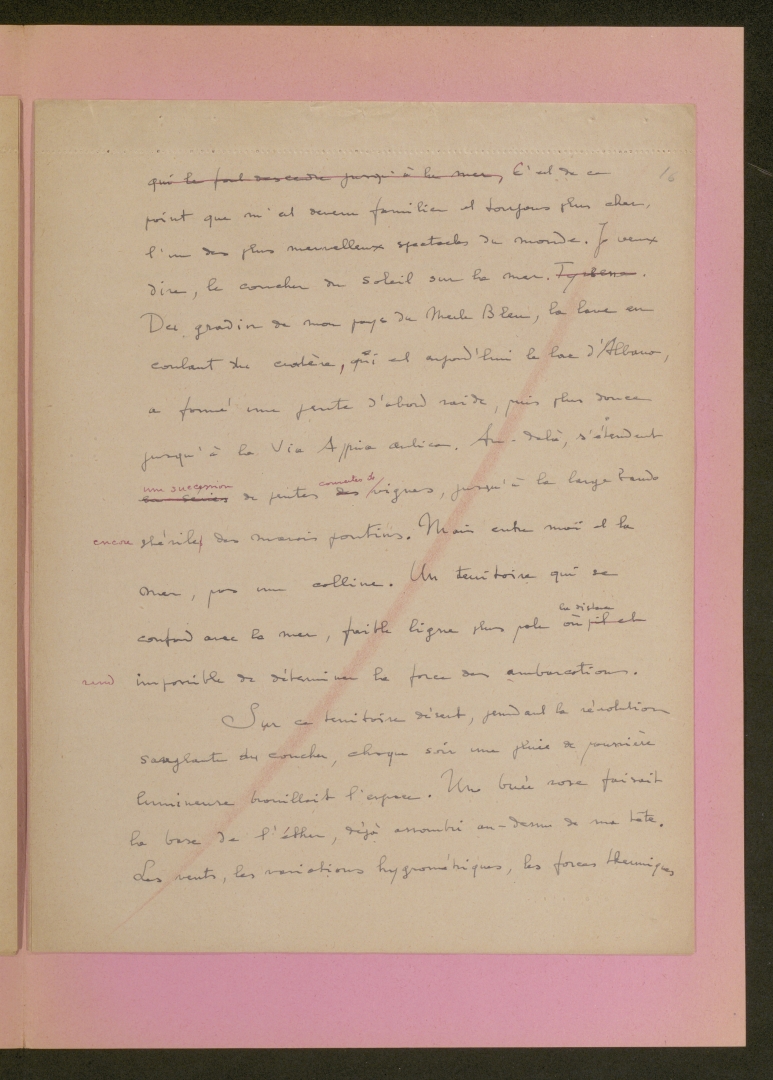 qui le fait descendre jusqu'à la mer, C'est de ce 16
point que m'est devenu familier et toujours plus cher,
l'un des plus merveilleux spectacles du monde. Je veux
dire, le coucher du soleil sur la mer.
Des gradins de mon pays du Merle Bleu, la lave en
coulant du cratère, qui est aujourd'hui le lac d'Albano,
a formé une pente d'abord raide, puis plus douce
jusqu'à la Via Appia antica. Au-delà, s'étendent
une succession couvertes de
la série de pentes des vignes, jusqu'à la large bande
encore stérile des marais pontins. Mais entre moi et la
mer, pas une colline. Un territoire qui se
la distance
confond avec la mer, faible ligne plus pale où il est
rend impossible de déterminer la force des embarcations.
Sur ce territoire désert, pendant la révolution
sanglante du coucher, chaque soir une pluie de poussière
lumineuse brouillait l'espace. Une buée rose faisait
la base de l'éther, déjà assombri au-dessus de ma tête.
Les vents, les variations hygrométriques, les forces thermiques